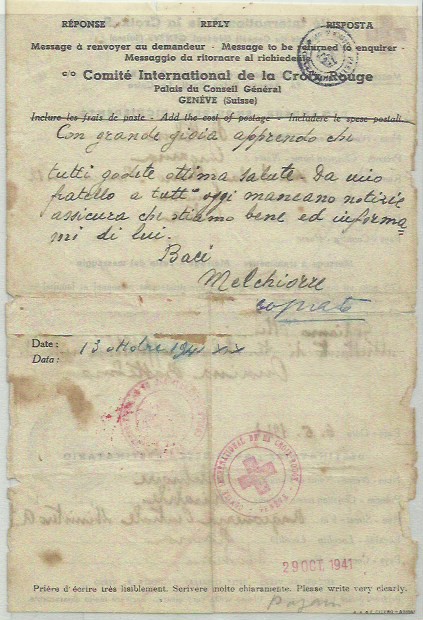 RÉPONSE REPLY RISPOSTA
Message à renvoyer au demandeur - Message to be returned to enquirer -
Messaggio da ritornare al richiedente
c/o Comité International de la Croix Rouge
Palais du Conseil Général
GENÈVE (Suisse)
Inclure les frais de poste - Add the cost of postage - Includere le spese postali
Con grande gioia apprendo che
tutti godete ottima salute. Da mio
fratello a tutt'oggi mancano notizie
assicura che stiamo bene ed informa=
mi di lui.
Baci
Melchiorre
Date:
Data: 13 ottobre 1941 XIX
COMITÉ INTERNATIONAL DE LA CROIX-ROUGE
GENÈVE
29 OCT. 1941
Prière d'écrire très lisiblement. Scrivere molto chiaramente. Please write very clearly.